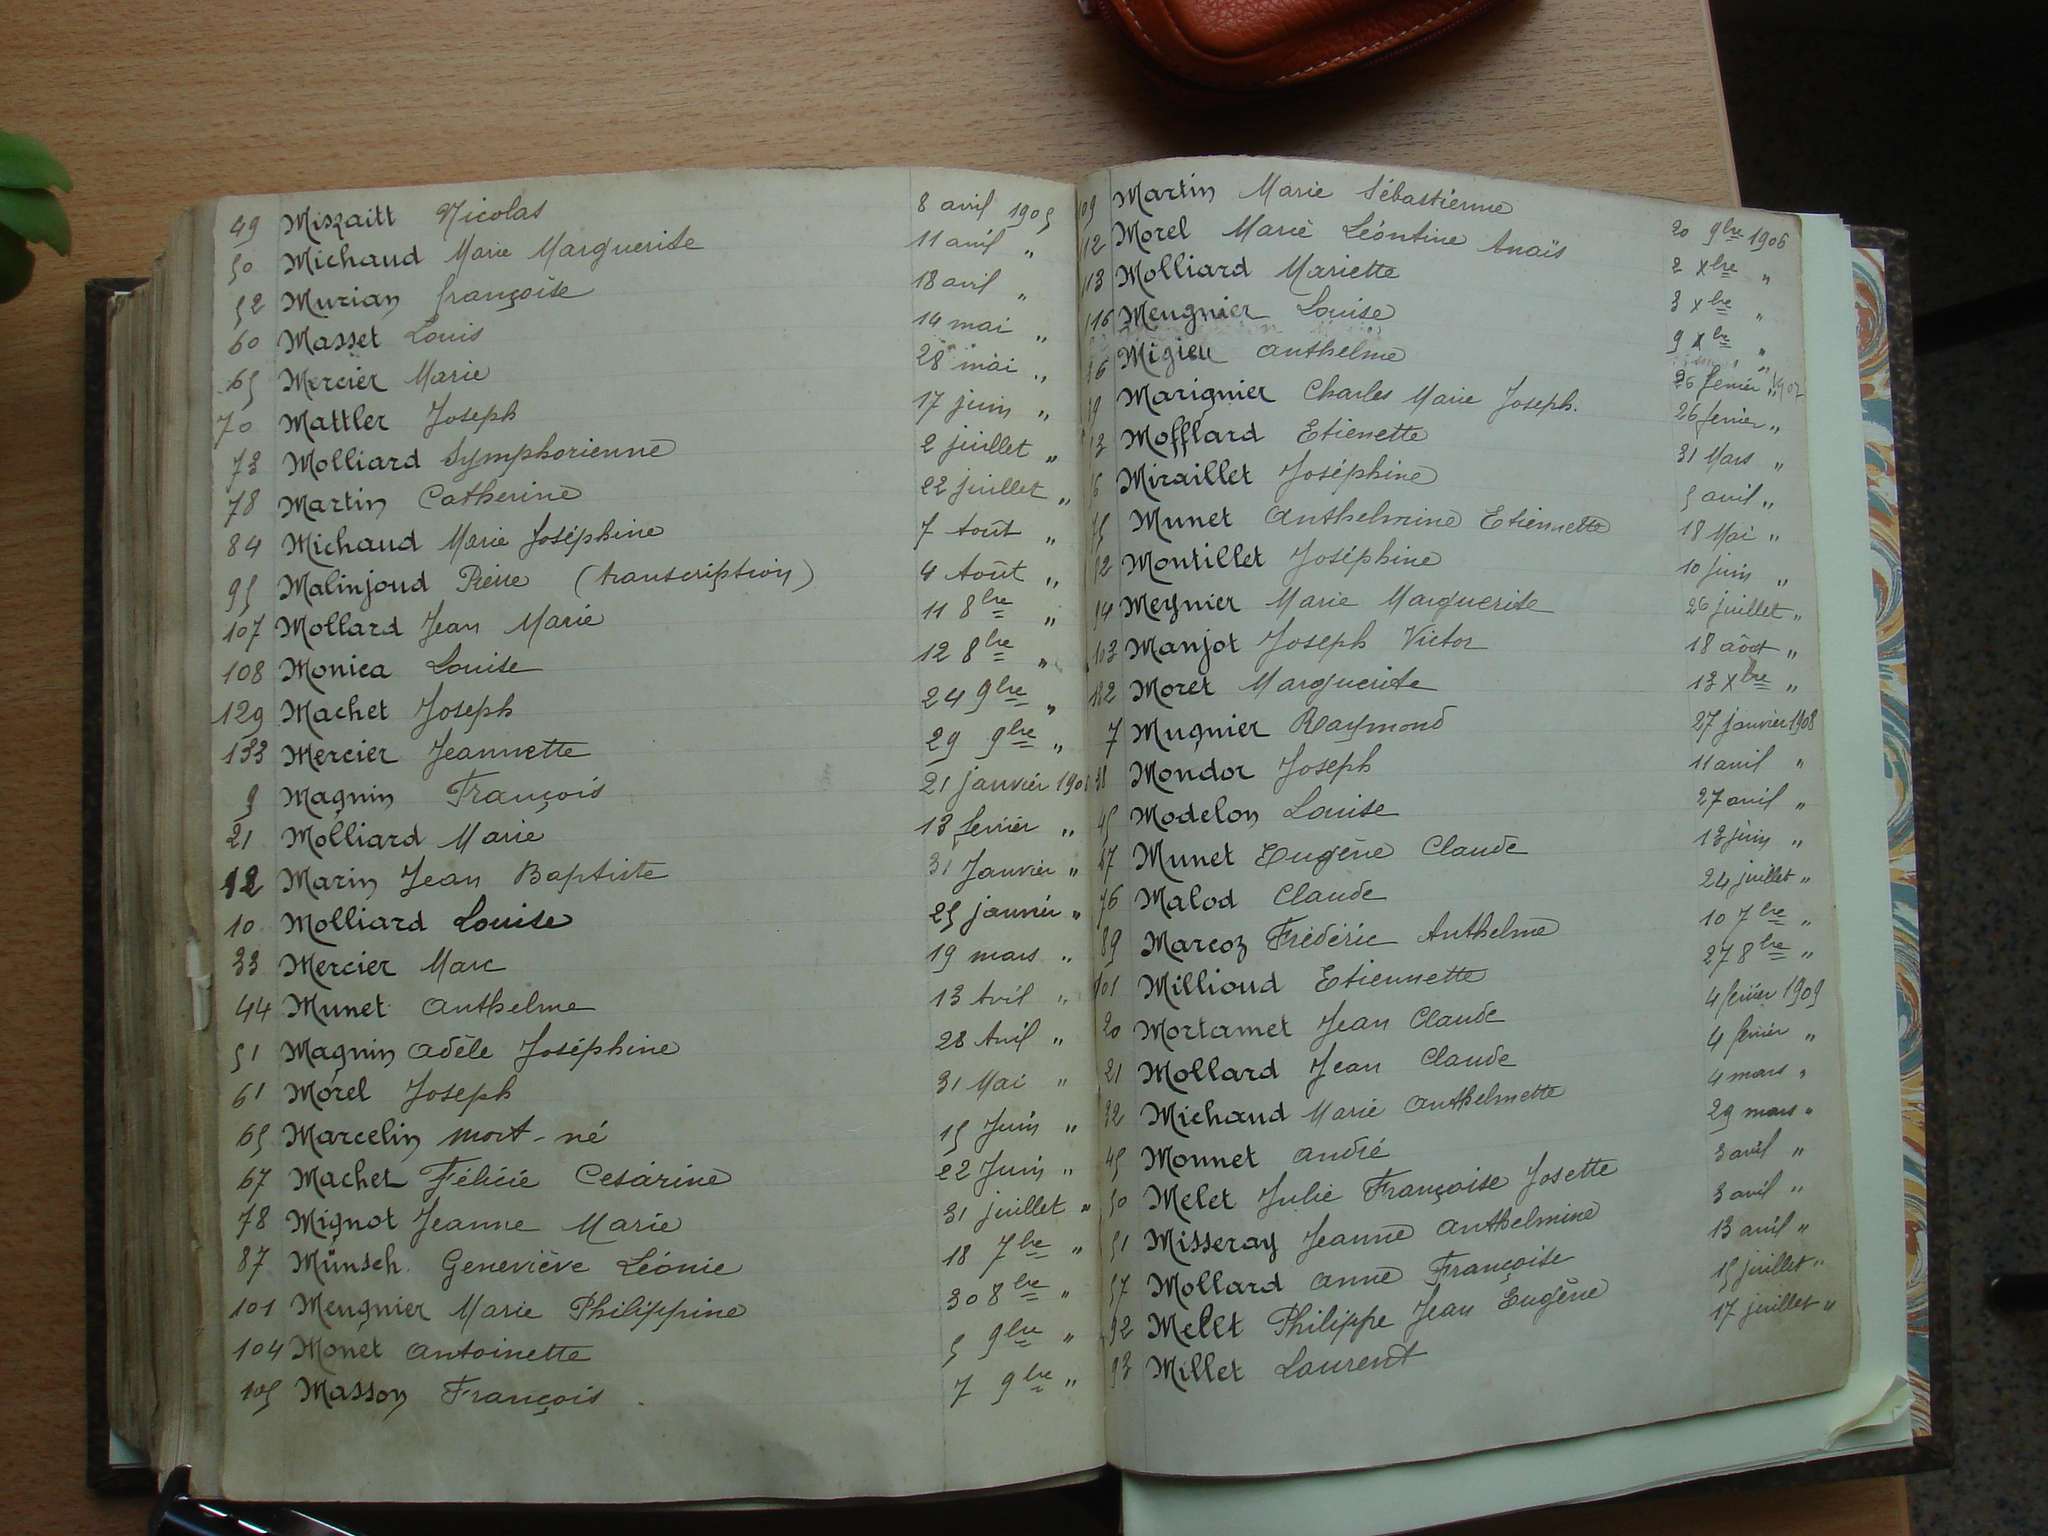 49 Miszaitt Nicolas 8 avril 1905
50 Michaud Marie Marguerite 11 avril "
52 Murian françoise 18 avril "
60 Masset Louis 14 mai "
65 Mercier Marie 28 mai "
70 Mattler Joseph 17 juin "
73 Molliard Symphorienne 2 juillet "
78 Martin Catherine 22 juillet "
84 Michaud Marie Joséphine 7 Août "
95 Malinjoud Pierre (transcription) 4 Août "
107 Mollard Jean Marie 11 8bre "
108 Monica Louise 12 8bre "
129 Machet Joseph 24 9bre "
133 Mercier Jeannette 29 9bre "
9 Magnin François 21 janvier 190
21 Molliard Marie 13 fevrier "
12 Marin Jean Baptiste 31 Janvier "
10 Molliard Louise 25 janvier "
33 Mercier Marc 19 mars "
44 Munet Anthelme 13 Avril "
51 Magnin Adèle Joséphine 28 Avril "
61 Morel Joseph 31 Mai "
65 Marcelin mort-né 15 Juin "
67 Machet Félicie Césarine 22 Juin "
78 Mignot Jeanne Marie 31 juillet "
87 Münsch Geneviève Léonie 18 7bre "
101 Meugnier Marie Philippine 30 8bre "
104 Monet Antoinette 5 9bre "
105 Masson François 7 9bre "
109 Martin Marie Sébastienne 20 9bre 1906
112 Morel Marie Léontine Anaïs 2 xbre "
113 Molliard Mariette 3 xbre "
116 Meugnier Louise 9 xbre "
16 Migieu Anthelme 26 fevrier " 1907
19 Marignier Charles Marie Joseph. 26 fevrier "
Mofflard Etienette 31 Mars "
Miraillet Joséphine 5 avril "
75 Munet Anthelmine Etiennette 18 Mai "
82 Montillet Joséphine 10 juin "
94 Meynier Marie Marguerite 26 juillet "
103 Manjot Joseph Victor 18 aôot "
132 Moret Marguerite 13 xbre "
7 Mugnier Raymond 27 janvier 1908
38 Mondor Joseph 11 avril "
45 Modelon Louise 27 avril "
67 Munet Eugène Claude 13 juin "
76 Malod Claude 24 juillet "
89 Marcoz Frédéric Anthelme 10 7bre "
101 Millioud Etiennette 27 8bre "
20 Mortamet Jean Claude 4 février 1909
21 Mollard Jean Claude 4 fevrier "
32 Michaud Marie Anthelmette 4 mars "
45 Monnet André 29 mars "
50 Melet Julie Françoise Josette 3 avril "
51 Misseray Jeanne Anthelmine 3 avril "
57 Mollard Anne Françoise 13 avril "
92 Mellt Philippe Jean Eugène 15 juillet "
93 Millet Laurent 17 juillet "